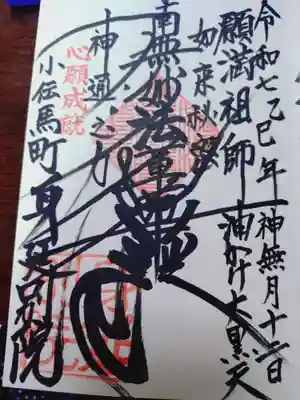 令和七乙巳年神無月十二日
願満祖師 油かけ大黒天
如来秘密
南無妙法蓮華経
十神通之力
心願成就
小伝馬町 身延別院